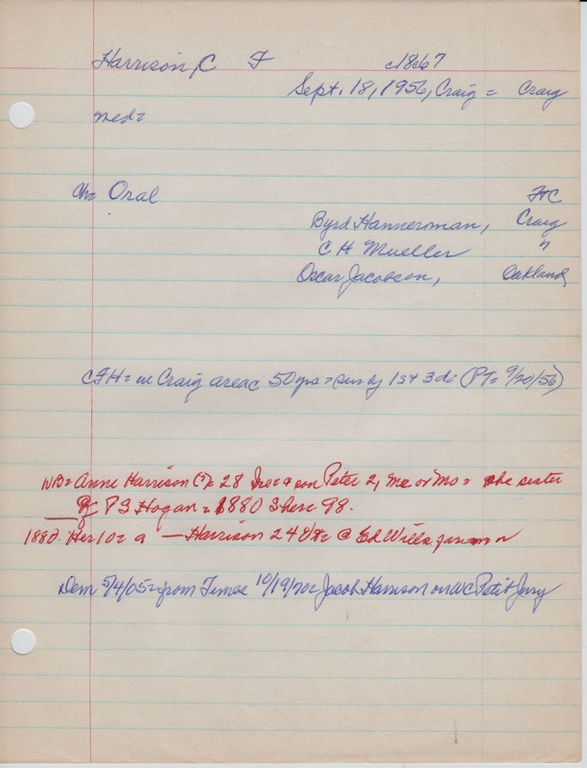 Harrison, C F c1867
Sept. 18, 1956, Craig = Craig
med=
ch= Oral FtC
Byrd Hannerman, Craig
C H Mueller "
Oscar Jacobson, Oakland,
CFH = in Craig area c 50 yrs = sur by 1s + 3d (PT= 9/20/56)
NB= Anne Harrison 28 + son Peter 2, = she sister
of P S Hogan = 1880 98.
1880. Her 10 = a — Harrison 24 @ Ed Wills
Dem 5/4/05 = from Times 10/19/70 = Jacob Harrison on WC Petit Jury